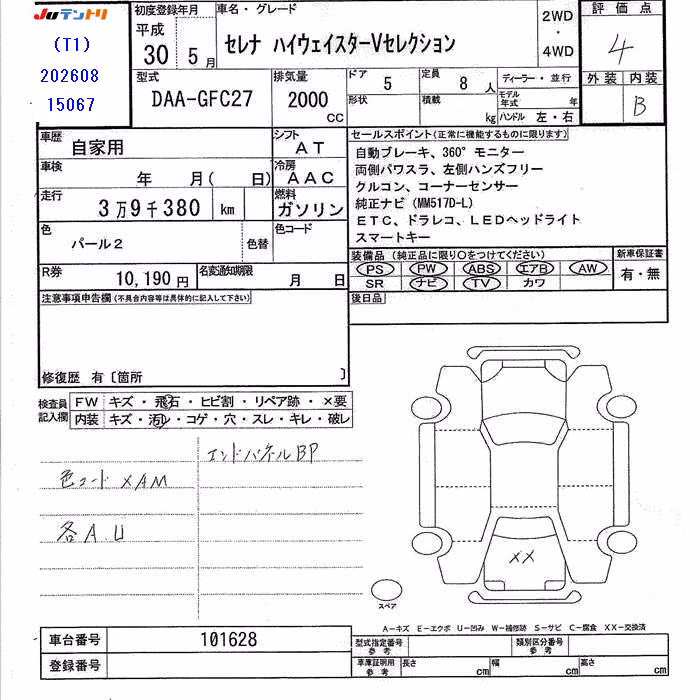 Juテントリ
(T1)
202608
15067
初度登録年月
平成
30 5月
車名・グレード
セレナ ハイウェイスターVセレクション
2WD
・
4WD
評価点
4
外装 内装
B
型式
DAA-GFC27
排気量
2000
CC
ドア 5
定員 8 人
形状
積載 kg
ディーラー・並行
モデル年式 年
ハンドル 左・右
車歴 自家用
シフト AT
車検 年 月( 日)
冷房 AAC
走行 3万9千380 km
燃料 ガソリン
色 パール2
色替
色コード
R券 10,190円
名変通知期限 月 日
セールスポイント(正常に機能するものに限ります)
自動ブレーキ、360°モニター
両側パワスラ、左側ハンズフリー
クルコン、コーナーセンサー
純正ナビ(MM517D-L)
ETC、ドラレコ、LEDヘッドライト
スマートキー
装備品 (純正品に限り○をつけてください)
PS PW ABS エアB AW
SR ナビ TV カワ
新車保証書
有・無
後日品
注意事項申告欄(不具合内容等は具体的に記入して下さい)
修復歴 有〔箇所 〕
検査員
記入欄
FW キズ・飛石・ヒビ割・リペア跡・×要
内装 キズ・汚レ・コゲ・穴・スレ・キレ・破レ
エンドパネルBP
色コード XAM
各A.U
XX
スペア
A-キズ E-エクボ U-凹み W-補修跡 S-サビ C-腐食 XX-交換済
車台番号 101628
登録番号
型式指定番号
参考
類別区分番号
参考
車庫証明用
参考
長さ cm 幅 cm 高さ cm